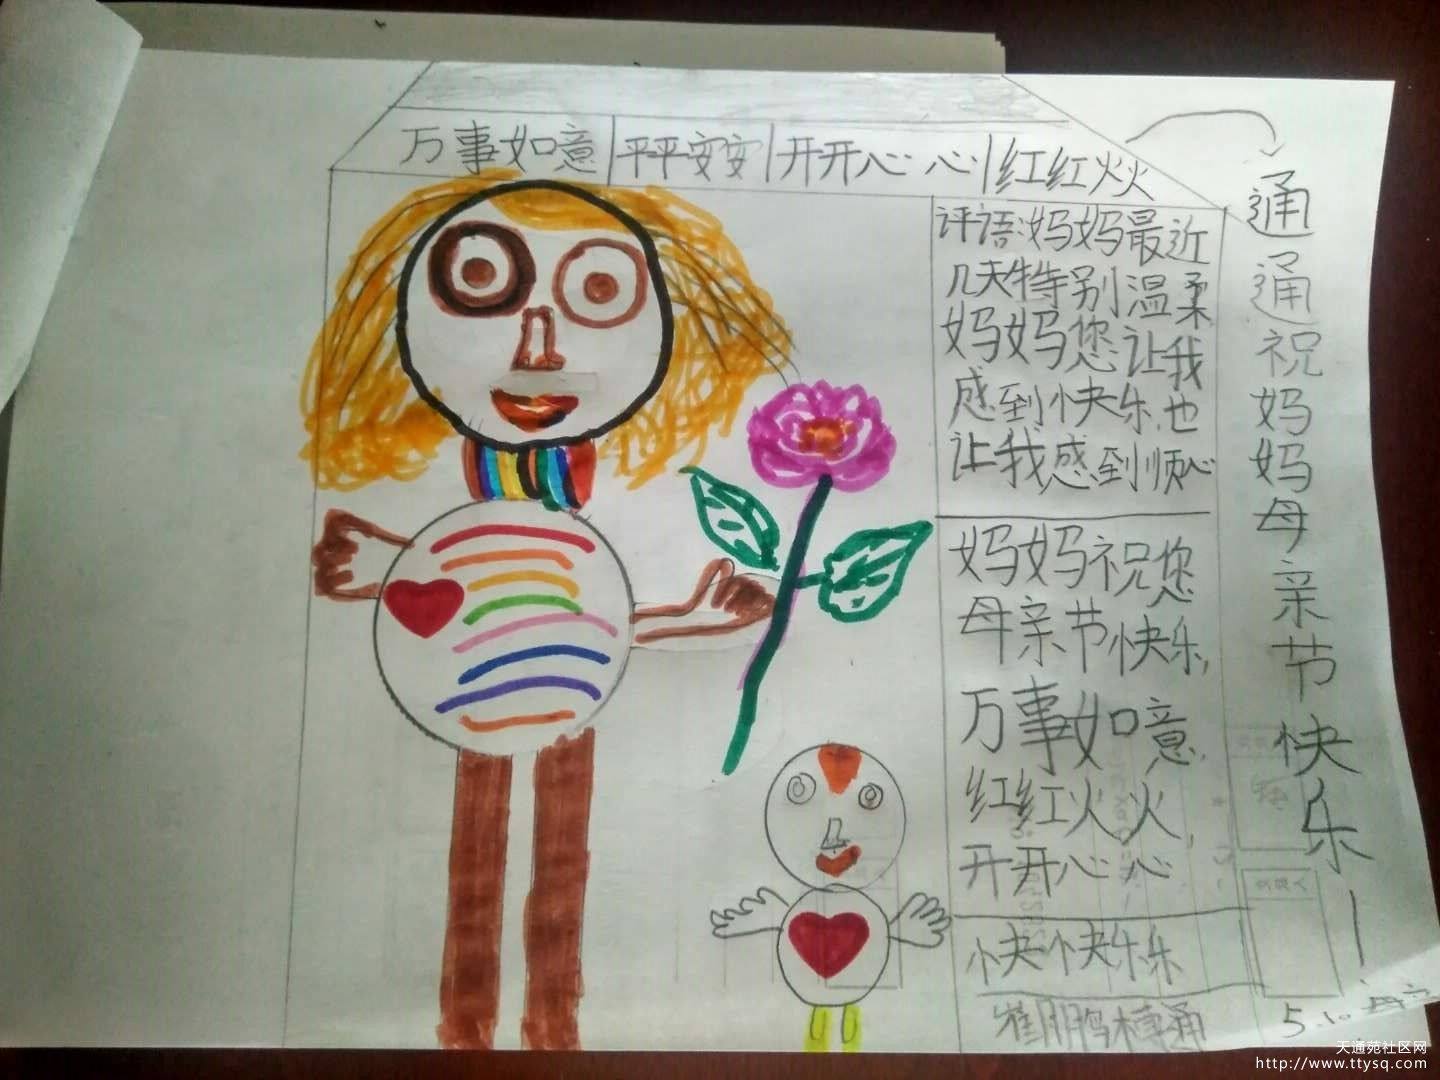 万事如意 平平安安 开开心心 红红火火
评语:妈妈最近
几天特别温柔
妈妈您让我
感到快乐,也
让我感到烦心
妈妈祝您
母亲节快乐,
万事如意,
红红火火,
开开心心
快快乐乐
通通祝妈妈母亲节快乐!
5.10
天通苑社区网
http://www.ttysq.com